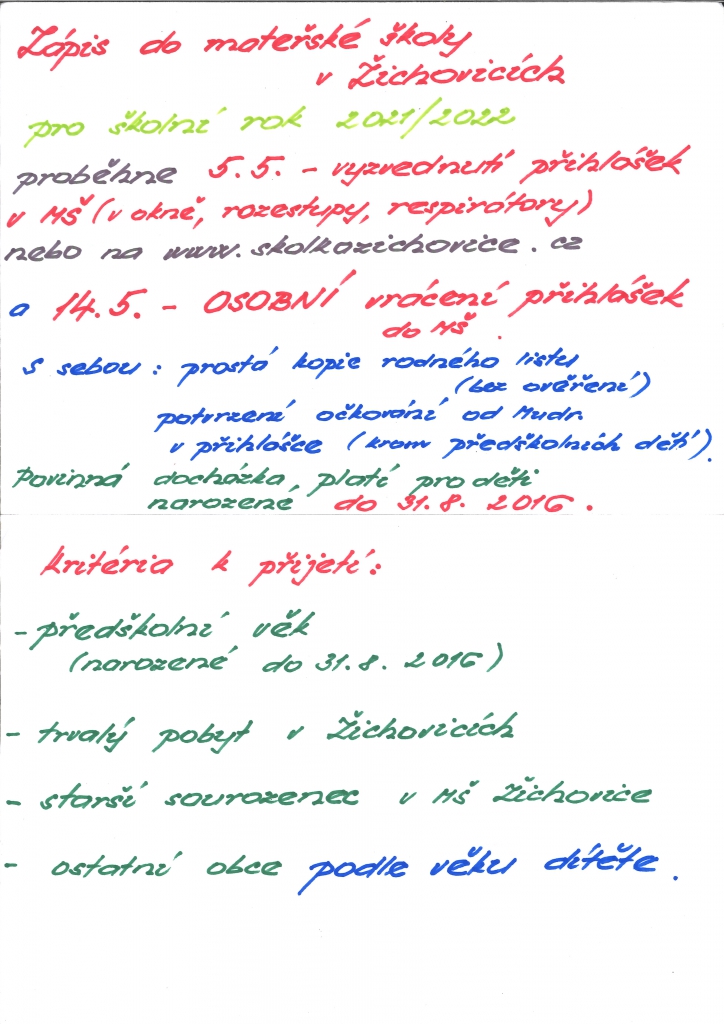 Zápis do mateřské školy
v Žichovicích
pro školní rok 2021/2022
proběhne 5.5. - vyzvednutí přihlášek
v MŠ (v okně, rozestupy, respirátory)
nebo na www.skolkazichovice.cz
a 14.5. - OSOBNÍ vrácení přihlášek
do MŠ.
S sebou: prostá kopie rodného listu
(bez ověření)
potvrzení očkování od Mudr.
v přihlášce (krom předškolních dětí).
Povinná docházka, platí pro děti
narozené do 31.8. 2016.
Kritéria k přijetí:
- předškolní věk
(narozené do 31.8. 2016)
- trvalý pobyt v Žichovicích
- starší sourozenec v MŠ Žichovice
- ostatní obce podle věku dítěte.